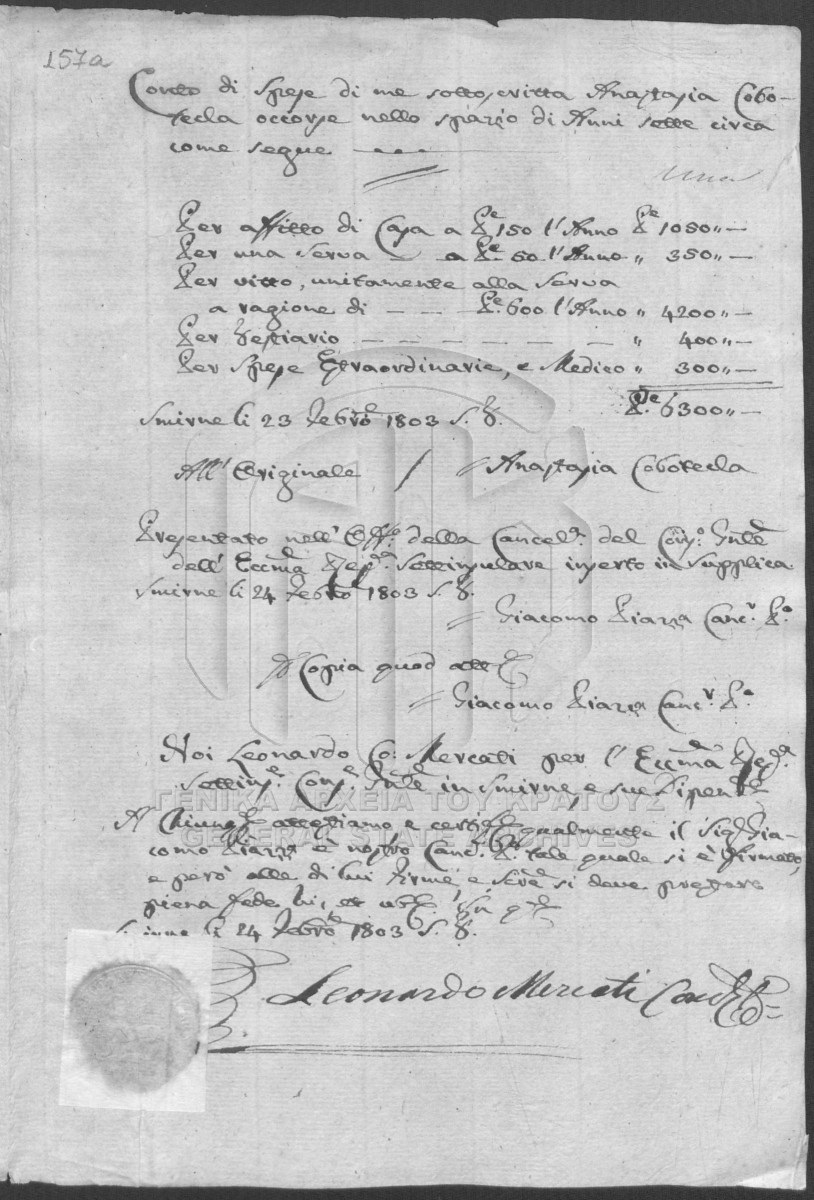 157a
Conto di Spese di me sottoscritta Anastasia Cobo-
tecla occorse nello spazio di Anni sette circa
come segue
Per affitto di Casa a P.e 150 l'Anno P.e 1050,, —
Per una Serva — a P.e 50 l'Anno ,, 350,, —
Per vitto, unitamente alla Serva
a ragione di — — — P.e 600 l'Anno ,, 4200,, —
Per Vestiario — — — — — — — ,, 400,, —
Per Spese Extraordinarie, e Medico ,, 300,, —
P.e 6300,, —
Smirne li 23 Febro 1803 S. V.
All' Originale / Anastasia Cobotecla
Presentato nell' Off.o della Cancel.a del Con.o Gnle
dell' Eccma Rep.a Settinsulare inserto in Supplica
Smirne li 24 Febro 1803 S. V.
Giacomo Piazza Canc.r P.o
Copia quod
Giacomo Piazza Canc.r P.o
Noi Leonardo Co: Mercati per l' Eccma Rep.a
Settins.e Con.e Gnle in Smirne, e sue Dipen.ze
A' Chiunq.e attestiamo e certif. qualmente il Sig.r Gia-
como Piazza è nostro Canc.r P.o tale quale si è firmato,
e però alle di lui firme, e Scre si deve prestare
piena fede
Smirne li 24 Febro 1803 S. V.
Leonardo Mercati
ΓΕΝΙΚΑ ΑΡΧΕΙΑ ΤΟΥ ΚΡΑΤΟΥΣ
GENERAL STATE ARCHIVES